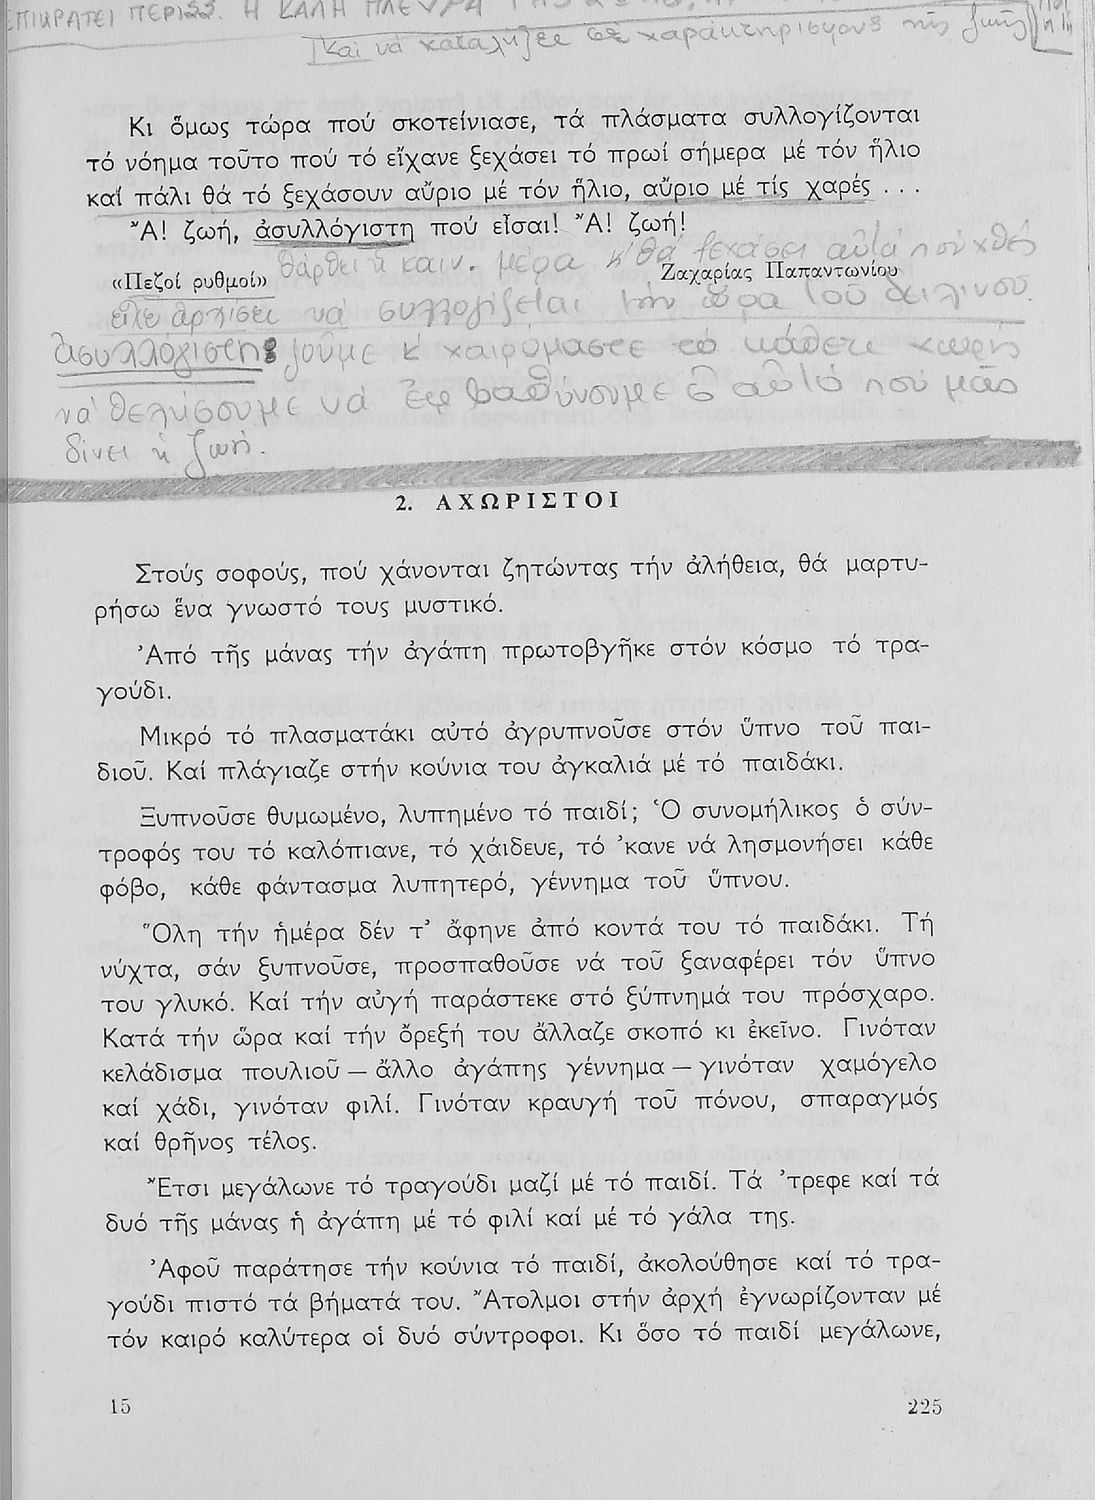 ΕΠΙΚΡΑΤΕΙ ΠΕΡΙΣΣ. Η ΚΑΛΗ ΠΛΕΥΡΑ ΤΗΣ
Καί νά καταλήξει σέ χαρακτηρισμούς τῆς ζωῆς
Κι ὅμως τώρα πού σκοτείνιασε, τά πλάσματα συλλογίζονται
τό νόημα τοῦτο πού τό εἴχανε ξεχάσει τό πρωί σήμερα μέ τόν ἥλιο
καί πάλι θά τό ξεχάσουν αὔριο μέ τόν ἥλιο, αὔριο μέ τίς χαρές . . .
Ἄ! ζωή, ἀσυλλόγιστη πού εἶσαι! Ἄ! ζωή!
θάρθει ἡ καιν. μέρα κ' θά ξεχάσει αὐτά πού χθές
«Πεζοί ρυθμοί» Ζαχαρίας Παπαντωνίου
εἶχε ἀρχίσει νά συλλογίζεται τήν ὥρα τοῦ δειλινοῦ
Ἀσυλλόγιστη: ζοῦμε κ' χαιρόμαστε τό κάθετι χωρίς
νά θελήσουμε νά ἐμβαθύνουμε σ' αὐτό πού μᾶς
δίνει ἡ ζωή.
2. ΑΧΩΡΙΣΤΟΙ
Στούς σοφούς, πού χάνονται ζητώντας τήν ἀλήθεια, θά μαρτυ-
ρήσω ἕνα γνωστό τους μυστικό.
Ἀπό τῆς μάνας τήν ἀγάπη πρωτοβγῆκε στόν κόσμο τό τρα-
γούδι.
Μικρό τό πλασματάκι αὐτό ἀγρυπνοῦσε στόν ὕπνο τοῦ παι-
διοῦ. Καί πλάγιαζε στήν κούνια του ἀγκαλιά μέ τό παιδάκι.
Ξυπνοῦσε θυμωμένο, λυπημένο τό παιδί; Ὁ συνομήλικος ὁ σύν-
τροφός του τό καλόπιανε, τό χάιδευε, τό ’κανε νά λησμονήσει κάθε
φόβο, κάθε φάντασμα λυπητερό, γέννημα τοῦ ὕπνου.
Ὅλη τήν ἡμέρα δέν τ’ ἄφηνε ἀπό κοντά του τό παιδάκι. Τή
νύχτα, σάν ξυπνοῦσε, προσπαθοῦσε νά τοῦ ξαναφέρει τόν ὕπνο
του γλυκό. Καί τήν αὐγή παράστεκε στό ξύπνημά του πρόσχαρο.
Κατά τήν ὥρα καί τήν ὄρεξή του ἄλλαζε σκοπό κι ἐκεῖνο. Γινόταν
κελάδισμα πουλιοῦ — ἄλλο ἀγάπης γέννημα — γινόταν χαμόγελο
καί χάδι, γινόταν φιλί. Γινόταν κραυγή τοῦ πόνου, σπαραγμός
καί θρῆνος τέλος.
Ἔτσι μεγάλωνε τό τραγούδι μαζί μέ τό παιδί. Τά ’τρεφε καί τά
δυό τῆς μάνας ἡ ἀγάπη μέ τό φιλί καί μέ τό γάλα της.
Ἀφοῦ παράτησε τήν κούνια τό παιδί, ἀκολούθησε καί τό τρα-
γούδι πιστό τά βήματά του. Ἄτολμοι στήν ἀρχή ἐγνωρίζονταν μέ
τόν καιρό καλύτερα οἱ δυό σύντροφοι. Κι ὅσο τό παιδί μεγάλωνε,
15 225